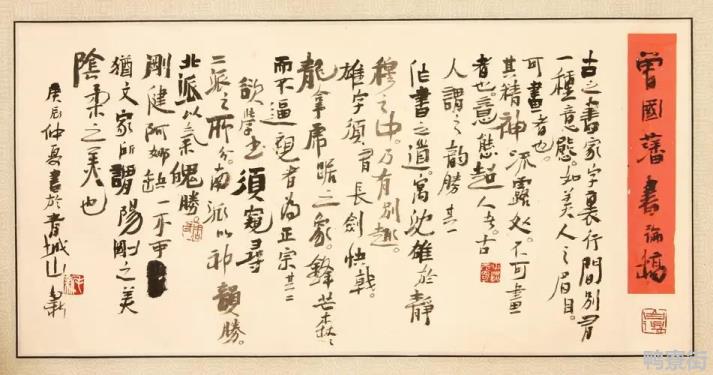 曾國藩書論摘
古之書家字裏行間別有
一種意態。如美人之眉目。
可畫者也。
其精神流露處。不可畫
者也。意態超人者。古
人謂之韵勝其一
作書之道。寓沈雄於靜
穆之中。乃有别趣。
雄字須有長劍快戟。
龍拿虎踞之象。鋒芒森森
而不逼視者為正宗其二
欲學書須窺尋
二派之所分。南派以神韻勝。
北派以氣魄勝
剛健阿娜缺一不可
猶文家所謂陽剛之美
陰柔之美也
庚辰仲夏書於青城山
鸭寮街